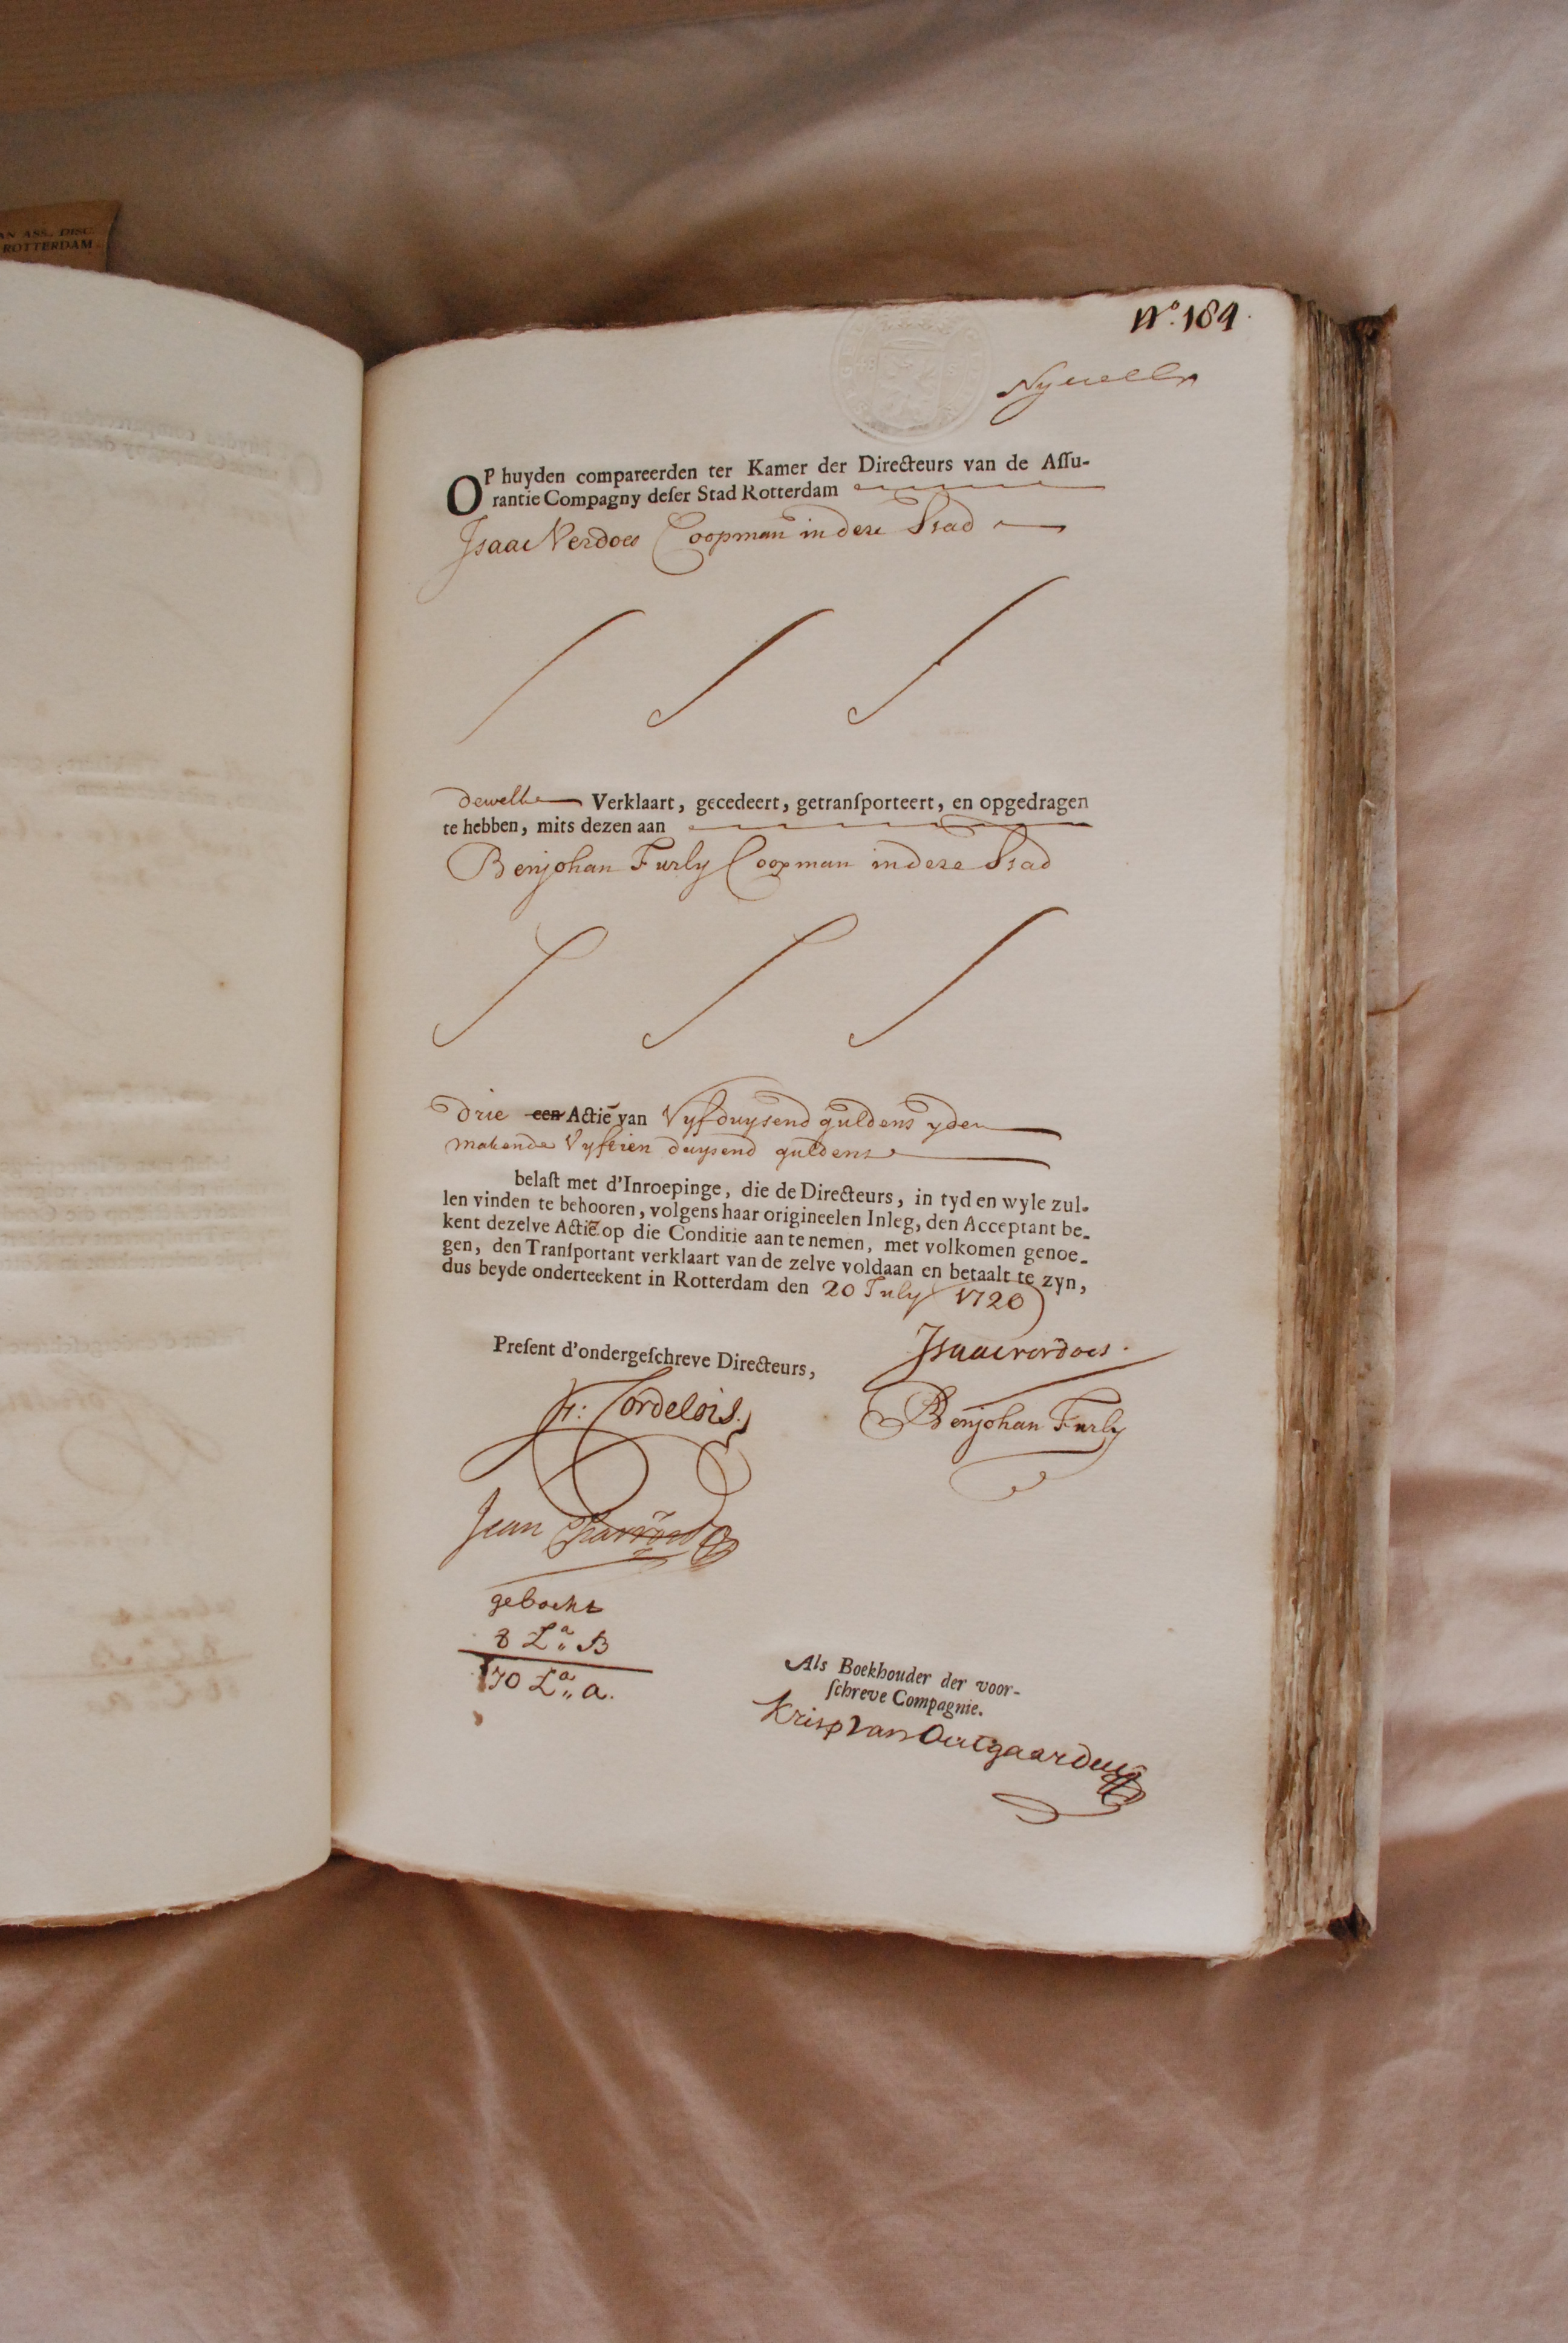 AN ASS., DISC.
ROTTERDAM
Nº. 184.
OP huyden compareerden ter Kamer der Directeurs van de Aſſu-
rantie Compagny deſer Stad Rotterdam
Isaac Verdoes Coopman in deze Stad
dewelke Verklaart, gecedeert, getranſporteert, en opgedragen
te hebben, mits dezen aan
Benjohan Furly Coopman in deze Stad
Drie een Actie van Vyfduysend guldens yder
makende Vyftien duysend guldens
belaſt met d'Inroepinge, die de Directeurs, in tyd en wyle zul-
len vinden te behooren, volgens haar origineelen Inleg, den Acceptant be-
kent dezelve Actie op die Conditie aan te nemen, met volkomen genoe-
gen, den Tranſportant verklaart van de zelve voldaan en betaalt te zyn,
dus beyde onderteekent in Rotterdam den 20 July 1720
Preſent d'ondergeſchreve Directeurs,
Isaac verdoes.
Benjohan Furly
Jean
geboekt
8 La B
170 La a.
Als Boekhouder der voor-
ſchreve Compagnie.
Krisp van Outgaarden